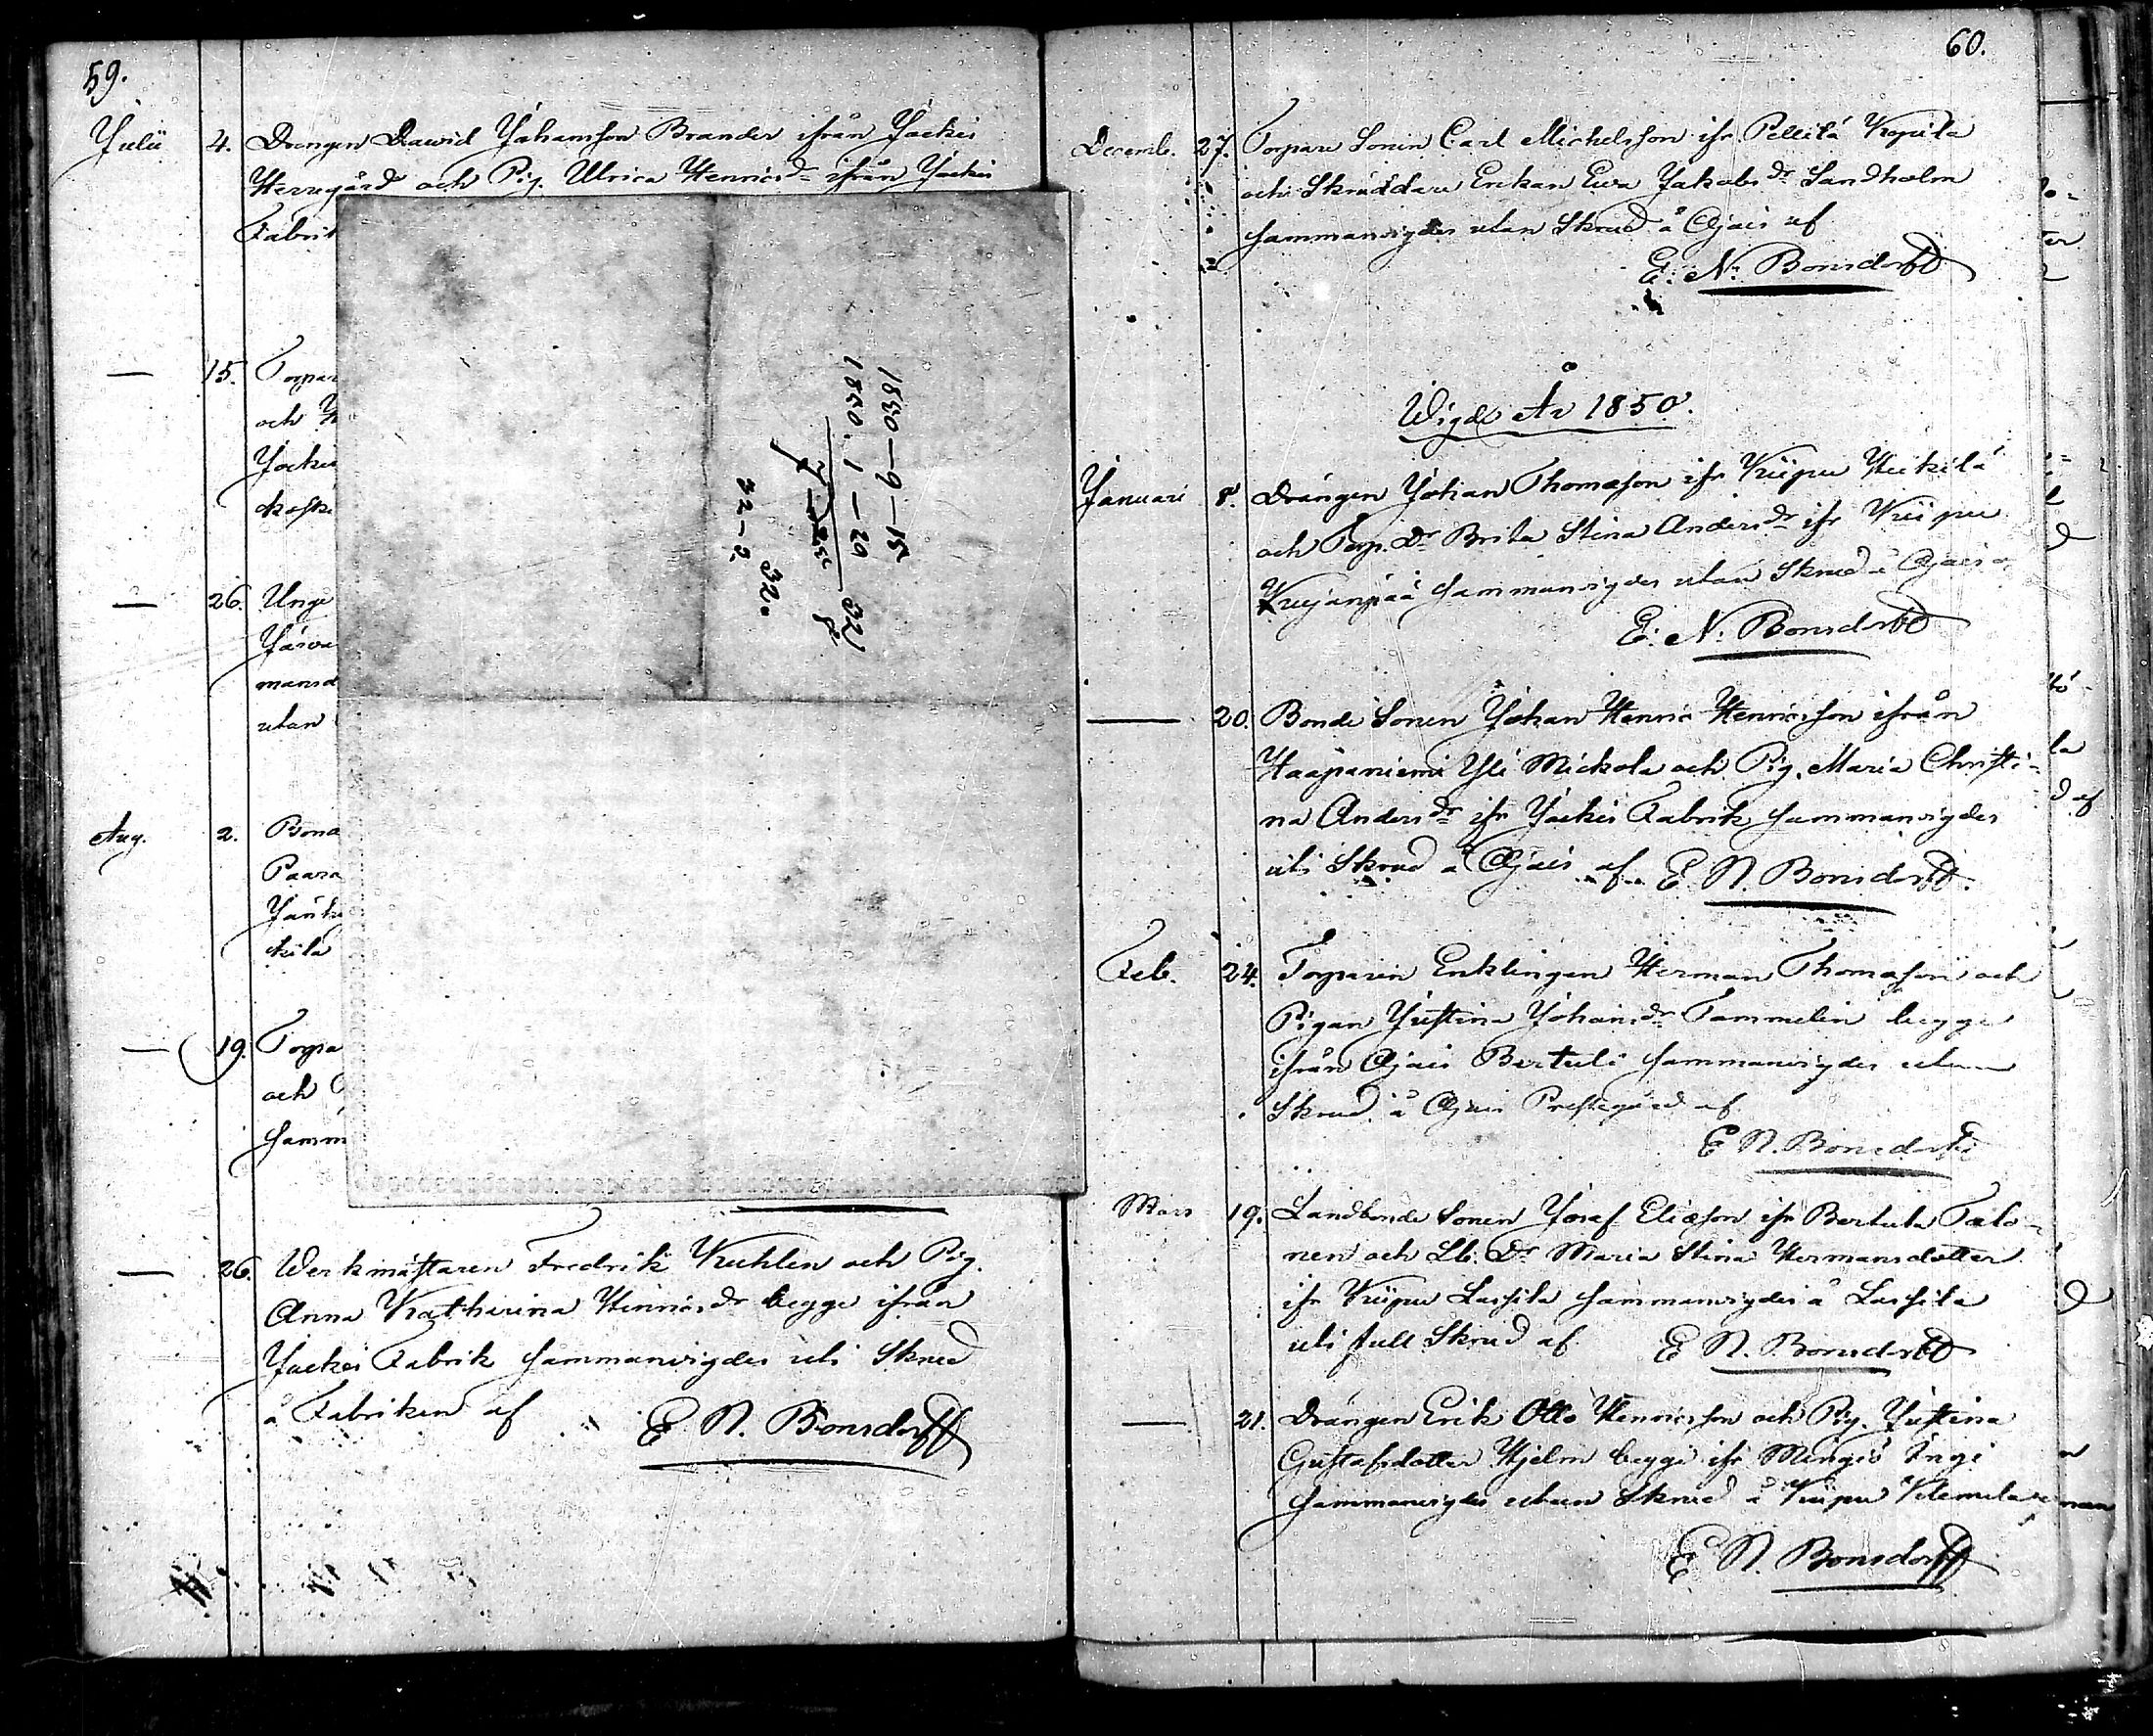 59.
Julii 4. Drengen Dawid Johansson Brander ifrån Jockis
Herregård och Pig. Ulrica Henricsdr ifrån Jockis
Fabrik
— 15. Torpar
och H
Jockis
koski
— 26. Unge
Järve
mansd
utan
Aug. 2. Bond
Paara
Jänhi
kilä
— 19. Torpa
och
samm
1850–9–15
1850. 1–29
32
8
32.
32–2.
— 26. Werkmästaren Fredrik Kuhlen och Pig.
Anna Katharina Henricsdr begge ifrån
Jockis Fabrik sammanvigdes uti Skrud
å Fabriken af E. N. Bonsdorff
60.
Decemb. 27. Torpare Sonen Carl Michelsson ifr Pellilä Kopila
och Skräddare Enkan Ewa Jakobsdr Sandholm
sammanvigdes utan Skrud å Ojais af
E. N. Bonsdorff
Wigde År 1850.
Januari 8. Drängen Johan Thomasson ifr Kuipu Heikilä
och Torp. Dr Brita Stina Andersdr ifr Kuipu
Kuijanpää sammanvigdes utan Skrud å Ojais
E. N. Bonsdorff
— 20. Bonde Sonen Johan Henric Henricsson ifrån
Haapaniemi Yli Mickola och Pig. Maria Christi-
na Andersdr ifr Jockis Fabrik sammanvigdes
uti Skrud å Ojais af E. N. Bonsdorff.
Feb. 24. Torparen Enklingen Herman Thomasson och
Pigan Justina Johansdr Tammelin begge
ifrån Ojais Bertuli sammanvigdes utan
Skrud å Ojais Prestegård af
E N. Bonsdorff
Mars 19. Landbonde Sonen Josef Eliasson ifr Bertula Talo-
nen och Lb. Dr Maria Stina Hermansdotter
ifr Kuipu Lassila sammanvigdes å Lassila
uti full Skrud af E N. Bonsdorff
— 21. Drängen Erik Otto Henricsson och Pig. Justina
Gustafsdotter Hjelm begge ifr Mingiö Ingi
sammanvigdes utan Skrud å Kuipu Klemela
E N. Bonsdorff